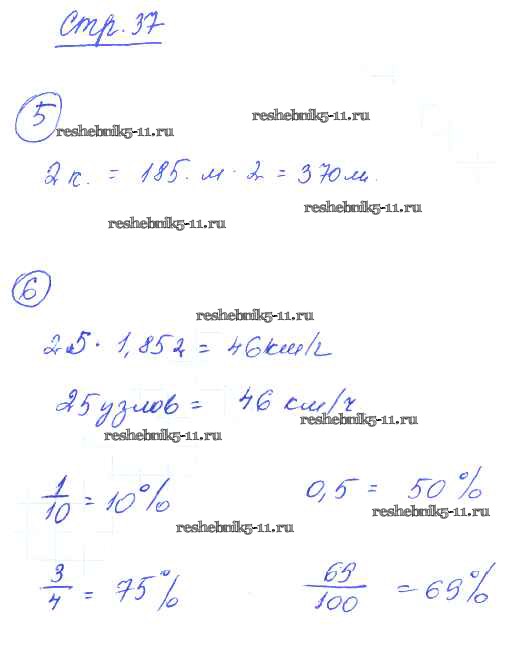 Стр. 37
5
reshebnik5-11.ru
reshebnik5-11.ru
2 к. = 185. м · 2 = 370 м.
reshebnik5-11.ru
reshebnik5-11.ru
6
reshebnik5-11.ru
25 · 1,852 = 46 км/г
25 узлов = 46 км/ч
reshebnik5-11.ru
reshebnik5-11.ru
1/10 = 10% 0,5 = 50%
reshebnik5-11.ru
reshebnik5-11.ru
3/4 = 75% 69/100 = 69%